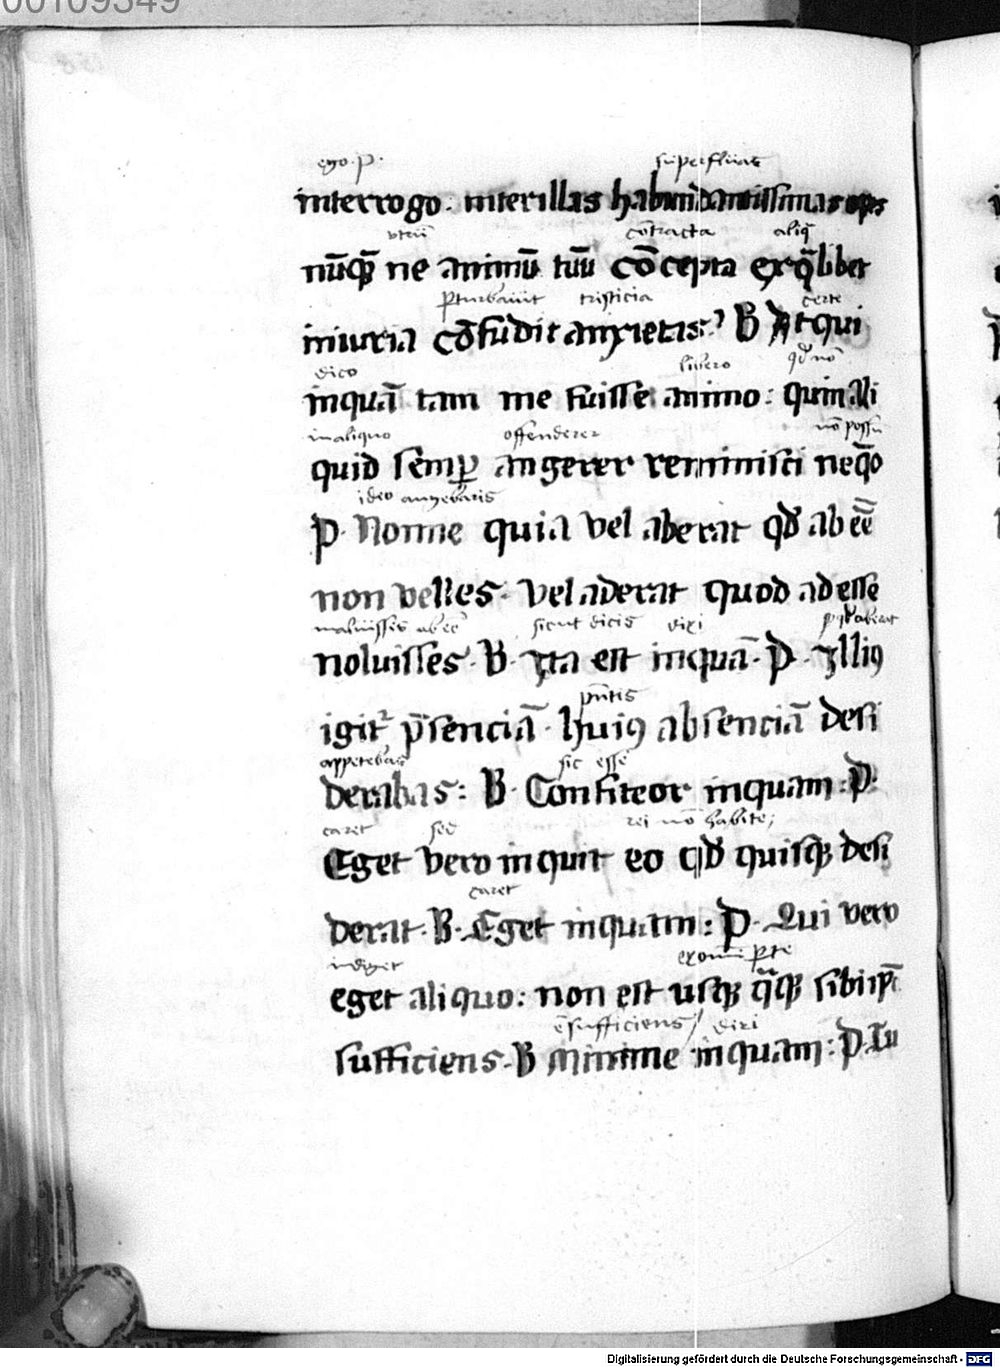 00109349
ego .p.
superfluas
interrogo. inter illas habundantissimas opes
vtrū
cōtracta
aliq̄
nūqꝫ ne animū tuū cōcepta ex q̄libet
ꝑturbauit
tristicia
certe
iniuria cōfudit anxietas? B Atqui
dico
libero
qd' nō
inquā tam me fuisse animo: quin ali
in aliquo
offenderer
nō possū
quid semꝑ angerer reminisci neq̄o
ideo angebaris
P. Nonne quia vel aberat qd' ab eēē
non velles. vel aderat quod adesse
maluisses abeē
sicut dicis
dixi
noluisses. B. Ita est inquā. P. Illiꝯ
p̄ntis
igit᷑ p̄senciā. huiꝯ absenciā desi
appetebas
sic esse
derabas: B. Confiteor inquam: P.
caret
sed
rei nō habite;
Eget vero inquit eo qd' quisqꝫ desi
caret
derat. B. Eget inquam: P. Qui vero
indiget
ex omni ꝑte
eget aliquo: non est usqꝫ q̄qꝫ sibi ip̄i
ē sufficiens
dixi
sufficiens. B Minime inquam: P. Tu
Digitalisierung gefördert durch die Deutsche Forschungsgemeinschaft - DFG